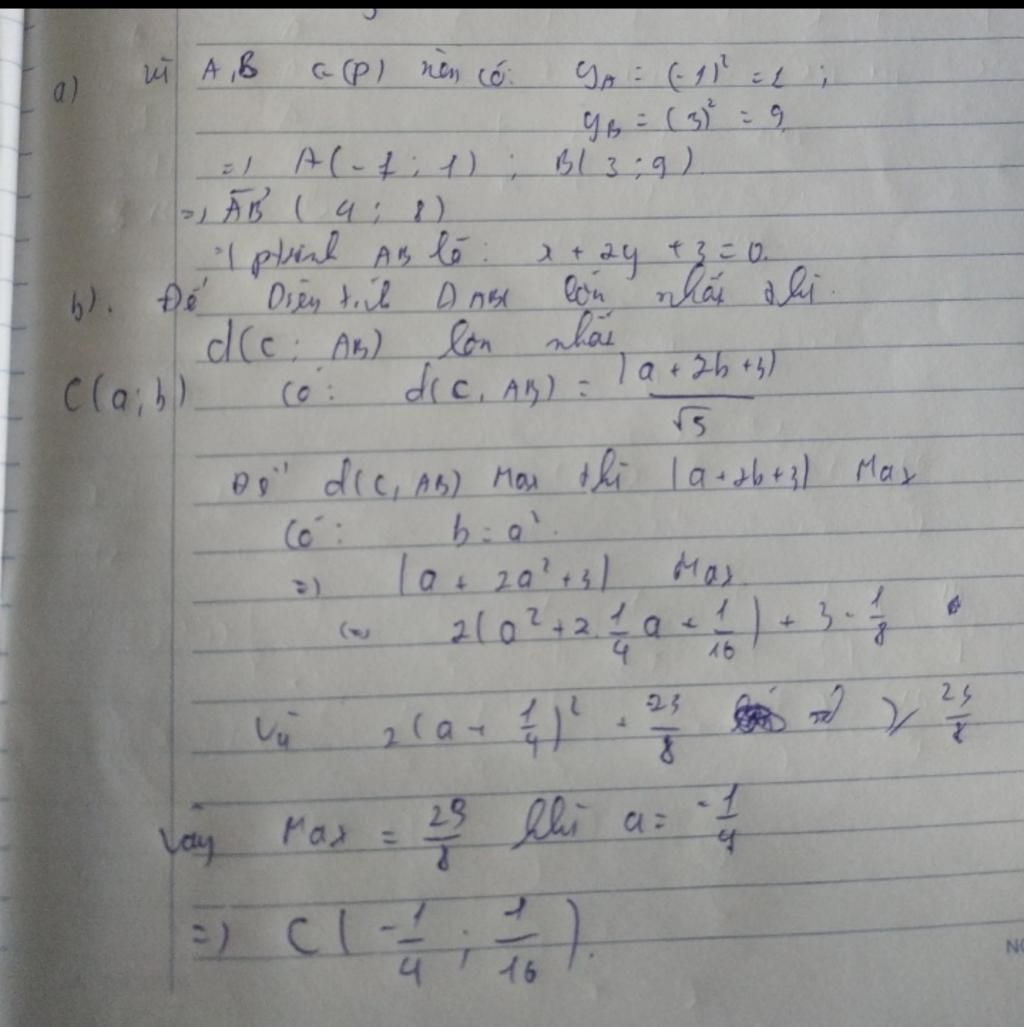 a) Vì A, B ∈ (P) nên có: y_A = (-1)² = 1 ;
y_B = (3)² = 9
=) A(-1 ; 1) ; B(3 ; 9)
=) AB (4 ; 8)
=) ptrình AB là: x + 2y + 3 = 0.
b). Để Diện tích Δ ABC lớn nhất thì.
d(C ; AB) lớn nhất
C(a ; b) có: d(C, AB) = |a + 2b + 3| / √5
Để d(C, AB) Max thì |a + 2b + 3| Max
Có: b = a².
=) |a + 2a² + 3| Max
(=) 2(a² + 2.1/4 a + 1/16) + 3 - 1/8
Vì 2(a + 1/4)² + 23/8 ≥ 23/8
Vậy Max = 23/8 khi a = -1/4
=) C(-1/4 ; 1/16).